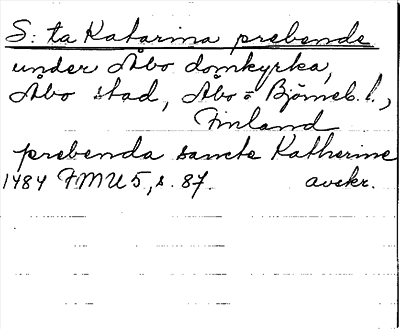 S:ta Katarina prebende
under Åbo domkyrka,
Åbo stad, Åbo o Björneb. l.,
Finland
prebenda sancte Katherine
1484 FMU 5, s. 87. avskr.